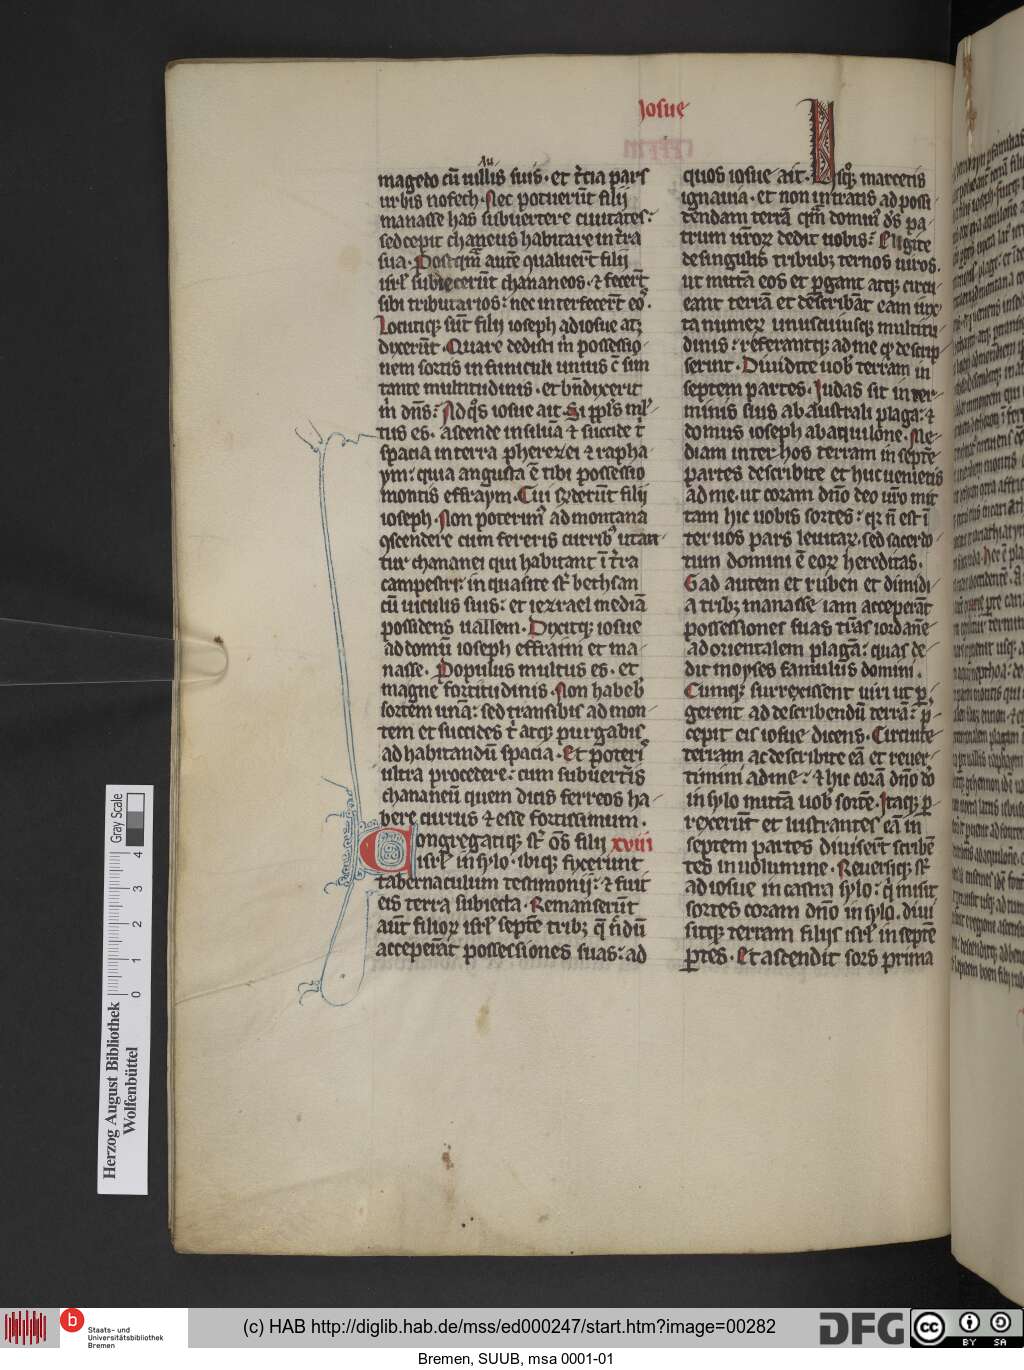 Iosue
magedo cū uillis suis · et t̄cia pars
urbis nofech · Nec potuerūt filij
manasse has subuertere ciuitates :
sed cepit chaneus habitare in t̄ra
sua · Postqm̄ aut̄e qualuer̄t filij
isrł subiecerūt chananeos · ⁊ fecer̄t
sibi tributarios : nec interfecer̄t eoꝰ ·
Locutiqꝫ sūt filij ioseph ad iosue atqꝫ
dixerūt · Quare dedisti m̄ possessio
nem sortis in funiculi unius c̄ sim
tante multitudinis · et bn̄dixerit
m̄ dn̄s : Ad qͦs iosue ait · Si ppl̄s ml̄
tus es · ascende in siluā ⁊ succide t̄
spacia in terra pherezei ⁊ rapha
ym : quia angusta ē tibi possessio
montis effraym · Cui rn̄derūt filij
ioseph · Non poterimꝰ ad montana
ꝯscendere cum fereris curribꝰ utan
tur chananei qui habitant ī t̄ra
campestri : in qua site st̄ bethsan
cū uiculis suis : et iezrael mediā
possidens uallem · Dixitqꝫ iosue
ad domū ioseph effraim et ma
nasse · Populus multus es · et
magne fortitudinis · Non habeb̄
sortem unā : sed transibis ad mon
tem et succides t̄ atqꝫ purgabis
ad habitandū spacia · Et poterꝭ
ultra procedere : cum subuertis
chananeū quem dicis ferreos ha
bere currus ⁊ esse fortissimum ·
Congregatiqꝫ st̄ om̄s filij xviii
isrł in sylo · ibiqꝫ fixerunt
tabernaculum testimonij : ⁊ fuit
eis terra subiecta · Remanserūt
aut̄ filioꝝ isrł septē tribꝫ q̄ n̄dū
acceperāt possessiones suas : ad
quos iosue ait · Usqꝫ marcetis
ignauia · et non intratis ad possi
dendam terrā qm̄ dominꝰ ds̄ pa
trum ur̄oꝝ dedit uobis : Eligite
de singulis tribubꝫ ternos uiros ·
ut mittā eos et ꝑgant atqꝫ circu
eant terrā et describāt eam iux
ta numeꝝ uniuscuiusqꝫ multitu
dinis : referantqꝫ ad me qͥ descrip
serint · Diuidite uob̄ terram in
septem partes · Iudas sit in ter
minis suis ab australi plaga : ⁊
domus ioseph ab aquilone · Me
diam inter hos terram in septē
partes describite et huc uenietis
ad me · ut coram dn̄o deo ur̄o mit
tam hic uobis sortes : qꝛ n̄ est ī
ter uos pars leuitaꝝ · sed sacerdo
tium domini ē eoꝝ hereditas ·
Gad autem et ruben et dimidi
a tribꝫ manasse iam acceperāt
possessiones suas t̄ns iordanē
ad orientalem plagā : quas de
dit moyses famulus domini ·
Cumqꝫ surrexissent uiri ut ꝑ
gerent ad describendū terrā : p̄
cepit eis iosue dicens · Circuite
terram ac describite eā et reuer
timini ad me : ⁊ hic corā dn̄o d̄o
in sylo mittā uob̄ sortē · Itaqꝫ ꝑ
rexerūt et lustrantes eā in
septem partes diuiserūt scribē
tes in uolumine · Reuersiqꝫ st̄
ad iosue in castra sylo : qͥ misit
sortes coram dn̄o in sylo · diui
sitqꝫ terram filijs isrł in septē
ꝑtes · Et ascendit sors prima
Gray Scale
0 1 2 3 4
Herzog August Bibliothek
Wolfenbüttel
b
Staats- und
Universitätsbibliothek
Bremen
(c) HAB http://diglib.hab.de/mss/ed000247/start.htm?image=00282
DFG
cc
BY SA
Bremen, SUUB, msa 0001-01